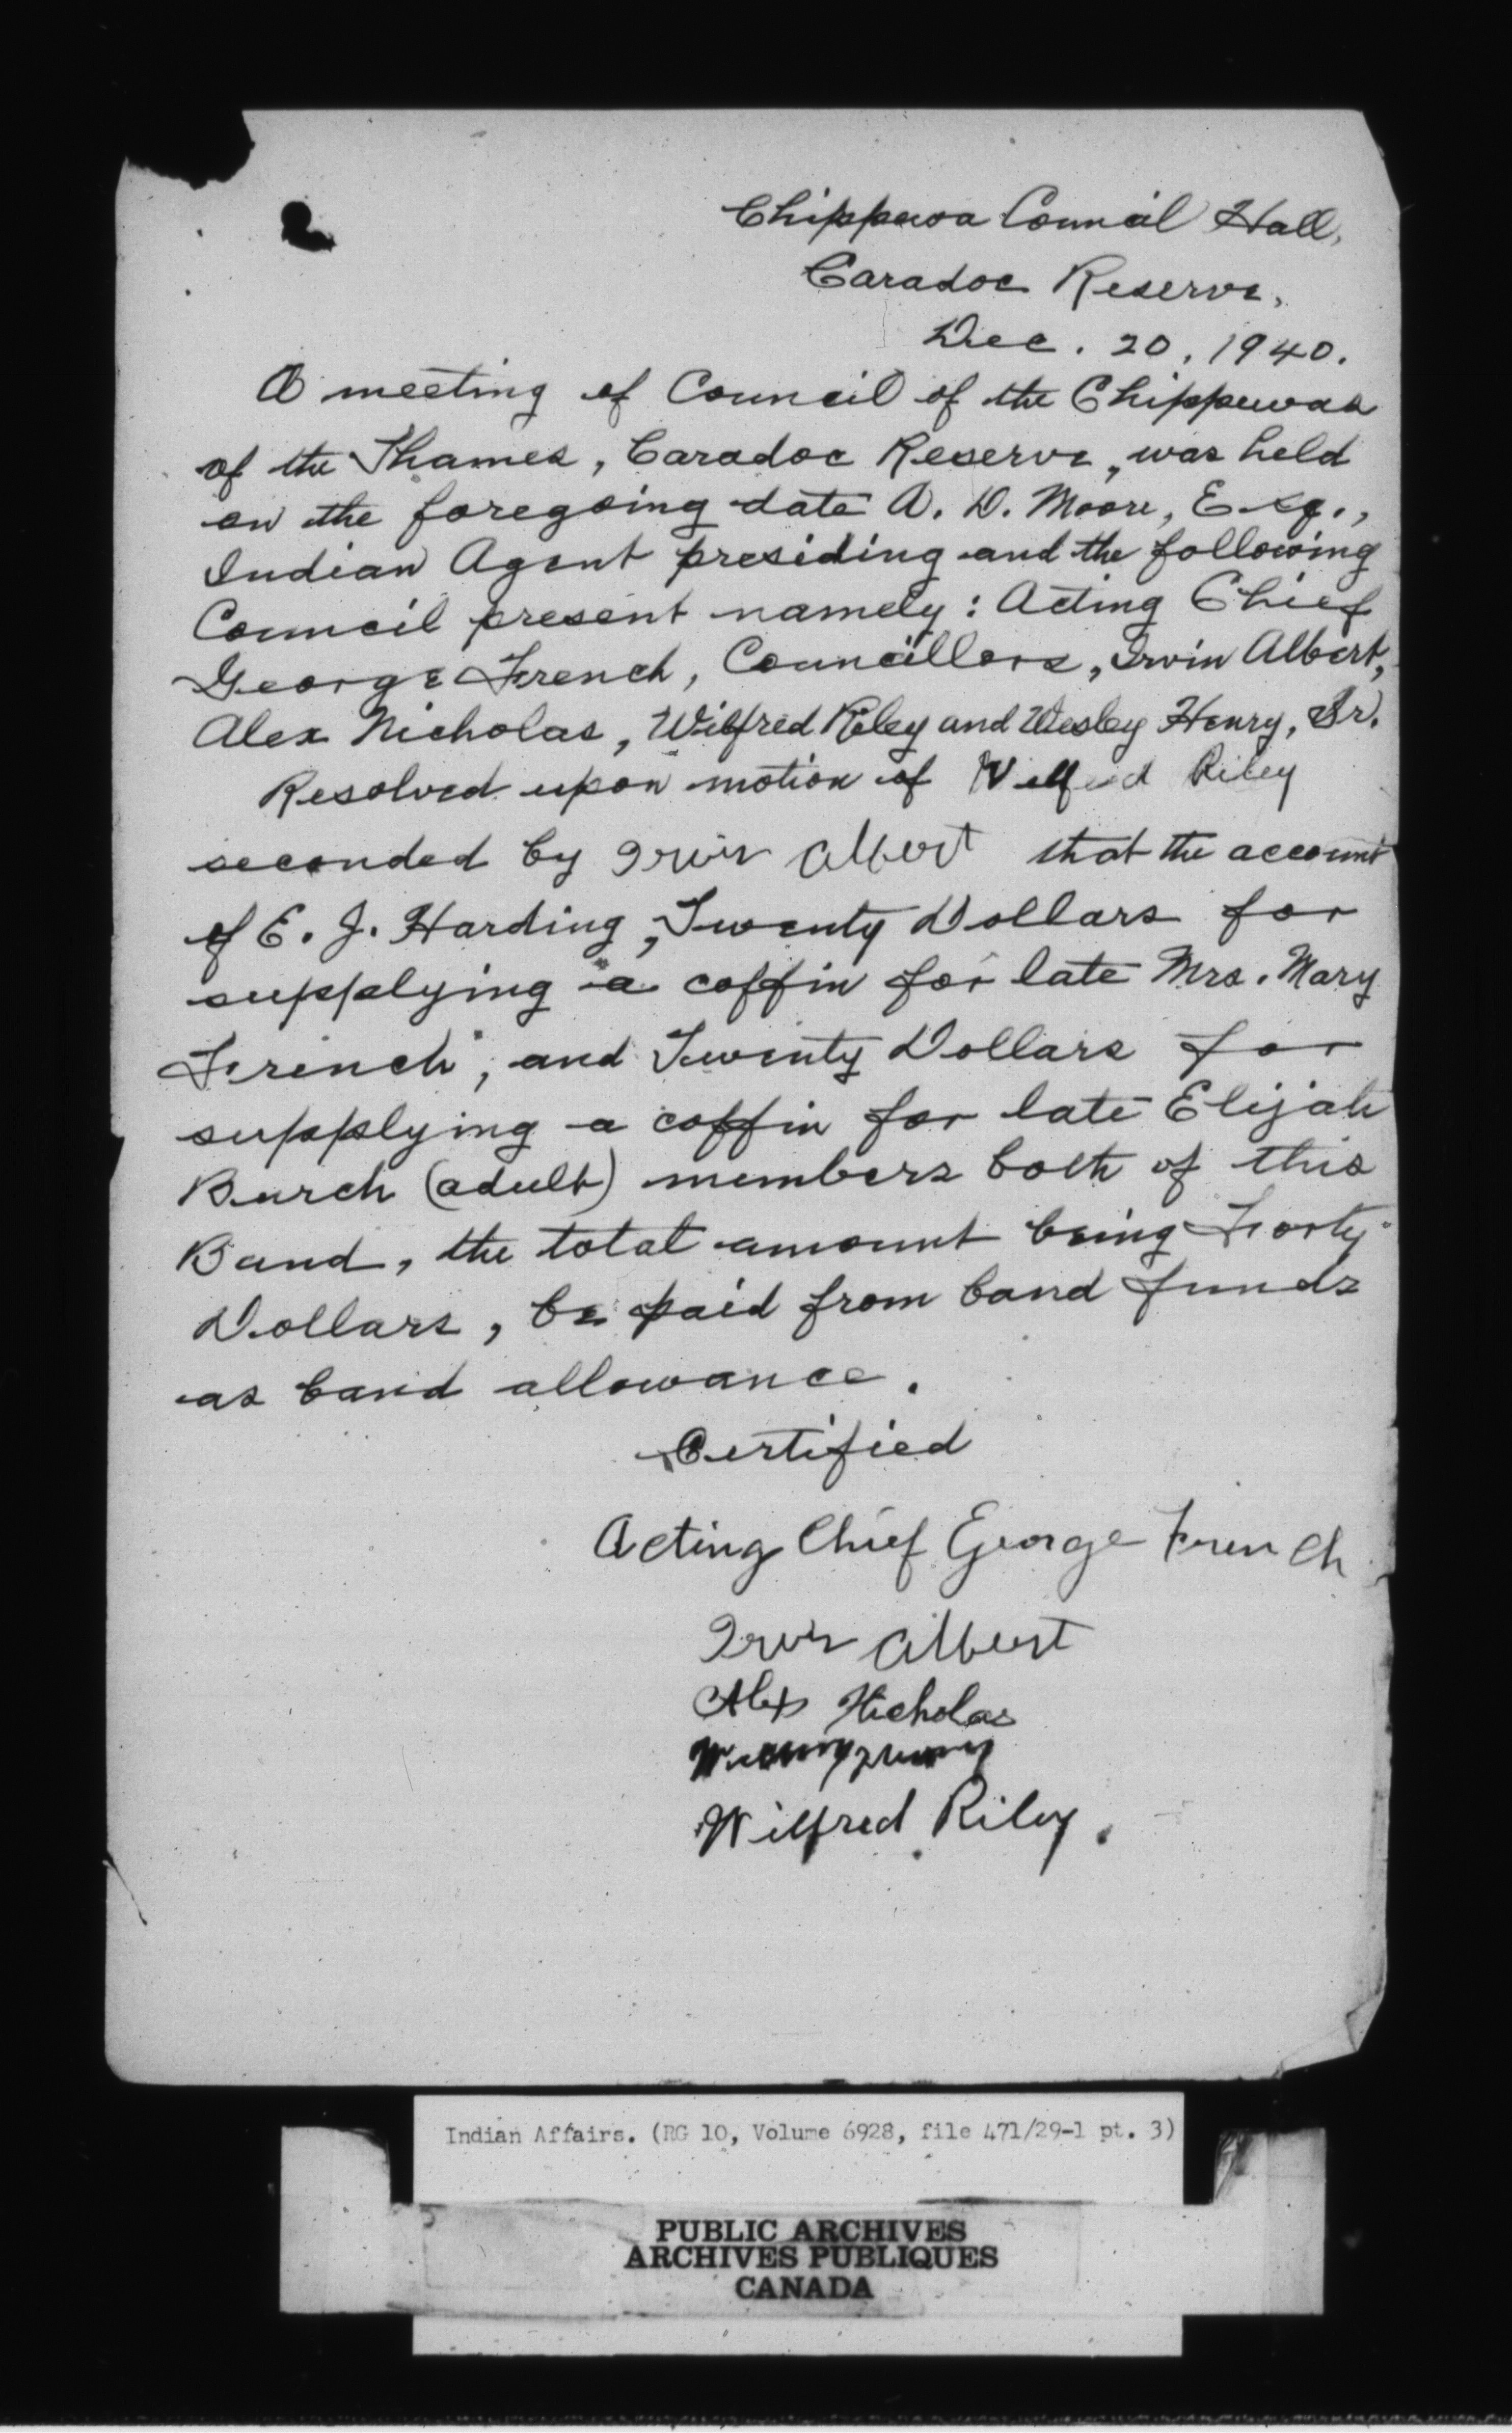 Chippewa Council Hall,
Caradoc Reserve,
Dec. 20, 1940.
A meeting of Council of the Chippewas
of the Thames, Caradoc Reserve, was held
on the foregoing date A. D. Moore, Esq.,
Indian Agent presiding and the following
Council present namely: Acting Chief
George French, Councillors, Irvin Albert,
Alex Nicholas, Wilfred Riley and Wesley Henry, Sr.
Resolved upon motion of Wilfred Riley
seconded by Irvin Albert that the account
of E. J. Harding, Twenty Dollars for
supplying a coffin for late Mrs. Mary
French, and Twenty Dollars for
supplying a coffin for late Elijah
Burch (adult) members both of this
Band, the total amount being Forty
Dollars, be paid from band funds
as band allowance.
Certified
Acting Chief George French
Irvin Albert
Alex Nicholas
Wilfred Riley.
Indian Affairs. (RG 10, Volume 6928, file 471/29-1 pt. 3)
PUBLIC ARCHIVES
ARCHIVES PUBLIQUES
CANADA